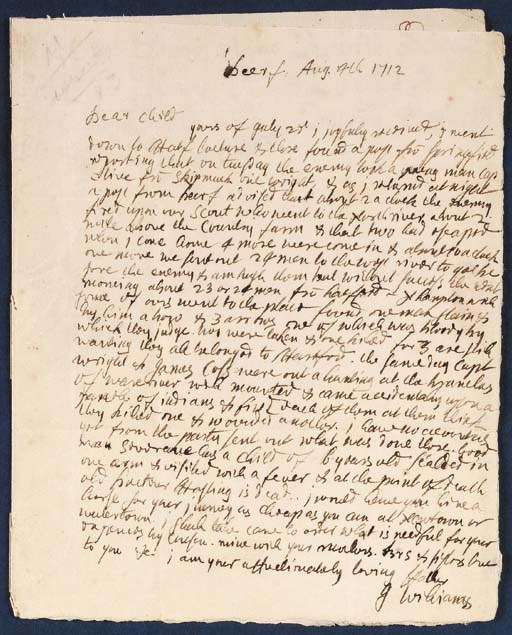 Deerf. Aug. 4th 1712
Dear Child
yours of July 28 I joyfully received, I went
down to Half lecture & there found a post fro Springfield
reporting that on Tuesday the enemy took a young man cap
alive fro Skipmuck one wright & as I returnd at night
a post from Deerf advised that about 2 a clock the enemy
fired upon our Scout who went to the north river about 2
mile above the Country farm & that two had escaped
when I came home 4 more were come in & about 10 a clock
one more we sent out 24 men to the west river to get be
fore the enemy & ambush them but without success the next
morning about 23 or 24 men fro hatfield & Northampton with
some of ours went to the place found one man slain &
by him a hoe & 3 arrows one of which was bloody by
which they judge two were taken & one killed for 3 are still
wanting they all belonged to Hartford. the same day Capt
wright & James Coss were out a hunting at the branches
of were river well mounted & came accidentally upon a
parcel of indians & fird each of them at them think
they killed one & wounded another. I have no account as
yet from the party sent out what was done there. Good
man has a child of 6 years old scalded in
one arm & visited with a fever & at the point of death
old is dead. I would have you hire a
horse for your journey as cheap as you can at newtown or
watertown. I shall take care to order what is needful for your
expences by cousen. mine with your mothers. brs & sisters love
to you &c. I am your affectionately loving father
J Williams